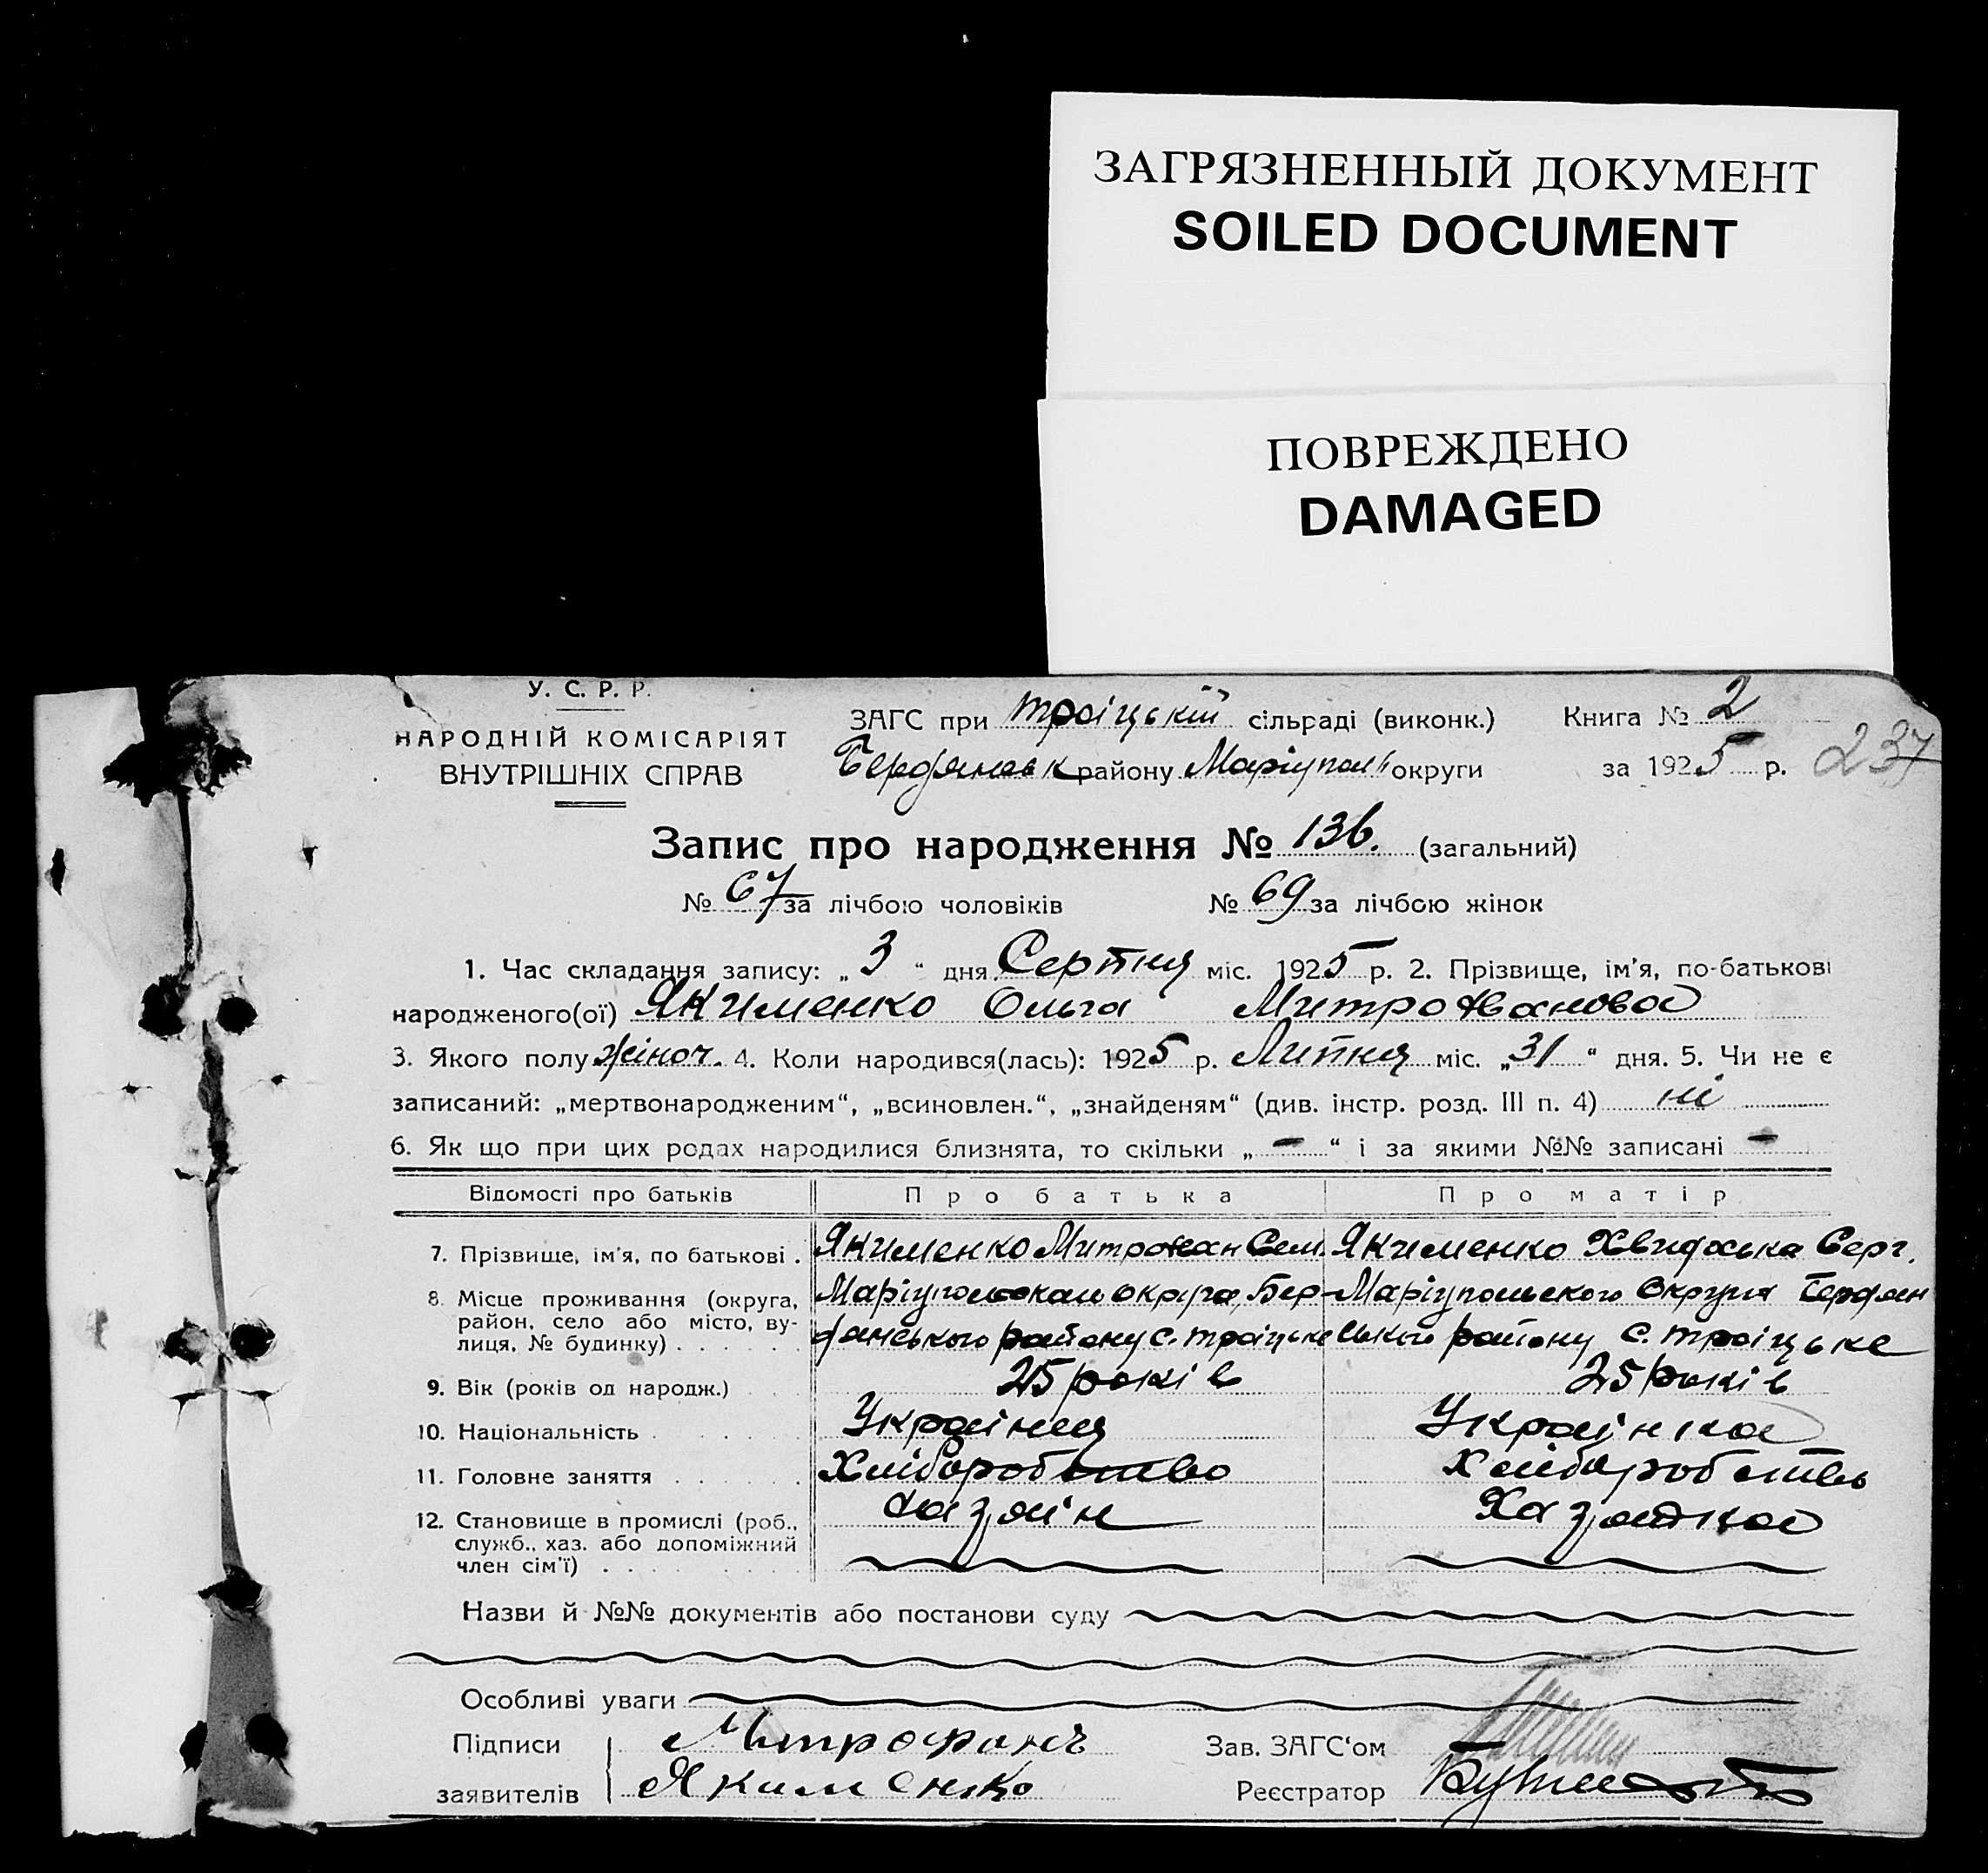 ЗАГРЯЗНЕННЫЙ ДОКУМЕНТ
SOILED DOCUMENT
ПОВРЕЖДЕНО
DAMAGED
У. С. Р. Р.
НАРОДНІЙ КОМІСАРІЯТ
ВНУТРІШНІХ СПРАВ
ЗАГС при Троіцькій сільраді (виконк.) Книга № 2
Бердянськ району Маріупол округи за 1925 р. 237
Запис про народження № 136. (загальний)
№ 67 за лічбою чоловіків № 69 за лічбою жінок
1. Час складання запису: „3“ дня Серпня міс. 1925 р. 2. Прізвище, ім'я, по-батькові
народженого(ої) Якименко Ольга Митрофанова
3. Якого полу жіноч. 4. Коли народився(лась): 1925 р. Липня міс. „31“ дня. 5. Чи не є
записаний: „мертвонародженим“, „всиновлен.“, „знайденям“ (див. інстр. розд. III п. 4) ні
6. Як що при цих родах народилися близнята, то скільки „–“ і за якими №№ записані –
Відомості про батьків Про батька Про матір
7. Прізвище, ім'я, по батькові . Якименко Митрофан Сем. Якименко Хвидоська Серг.
8. Місце проживання (округа, район, село або місто, вулиця, № будинку) . . . . . .
Маріупольскаи округа, Бердянського району с. Троіцьке
Маріупольского Округа Бердянського району с. Троіцьке
9. Вік (років од народж.) 25 років 25 років
10. Національність Украінця Украінка
11. Головне заняття Хліборобство Хліборобство
12. Становище в промислі (роб., Хазяін Хазяйка
служб., хаз. або допоміжний
член сім'ї)
Назви й №№ документів або постанови суду
Особливі уваги
Підписи Митрофанъ Зав. ЗАГС'ом
заявителів Якименко Реєстратор